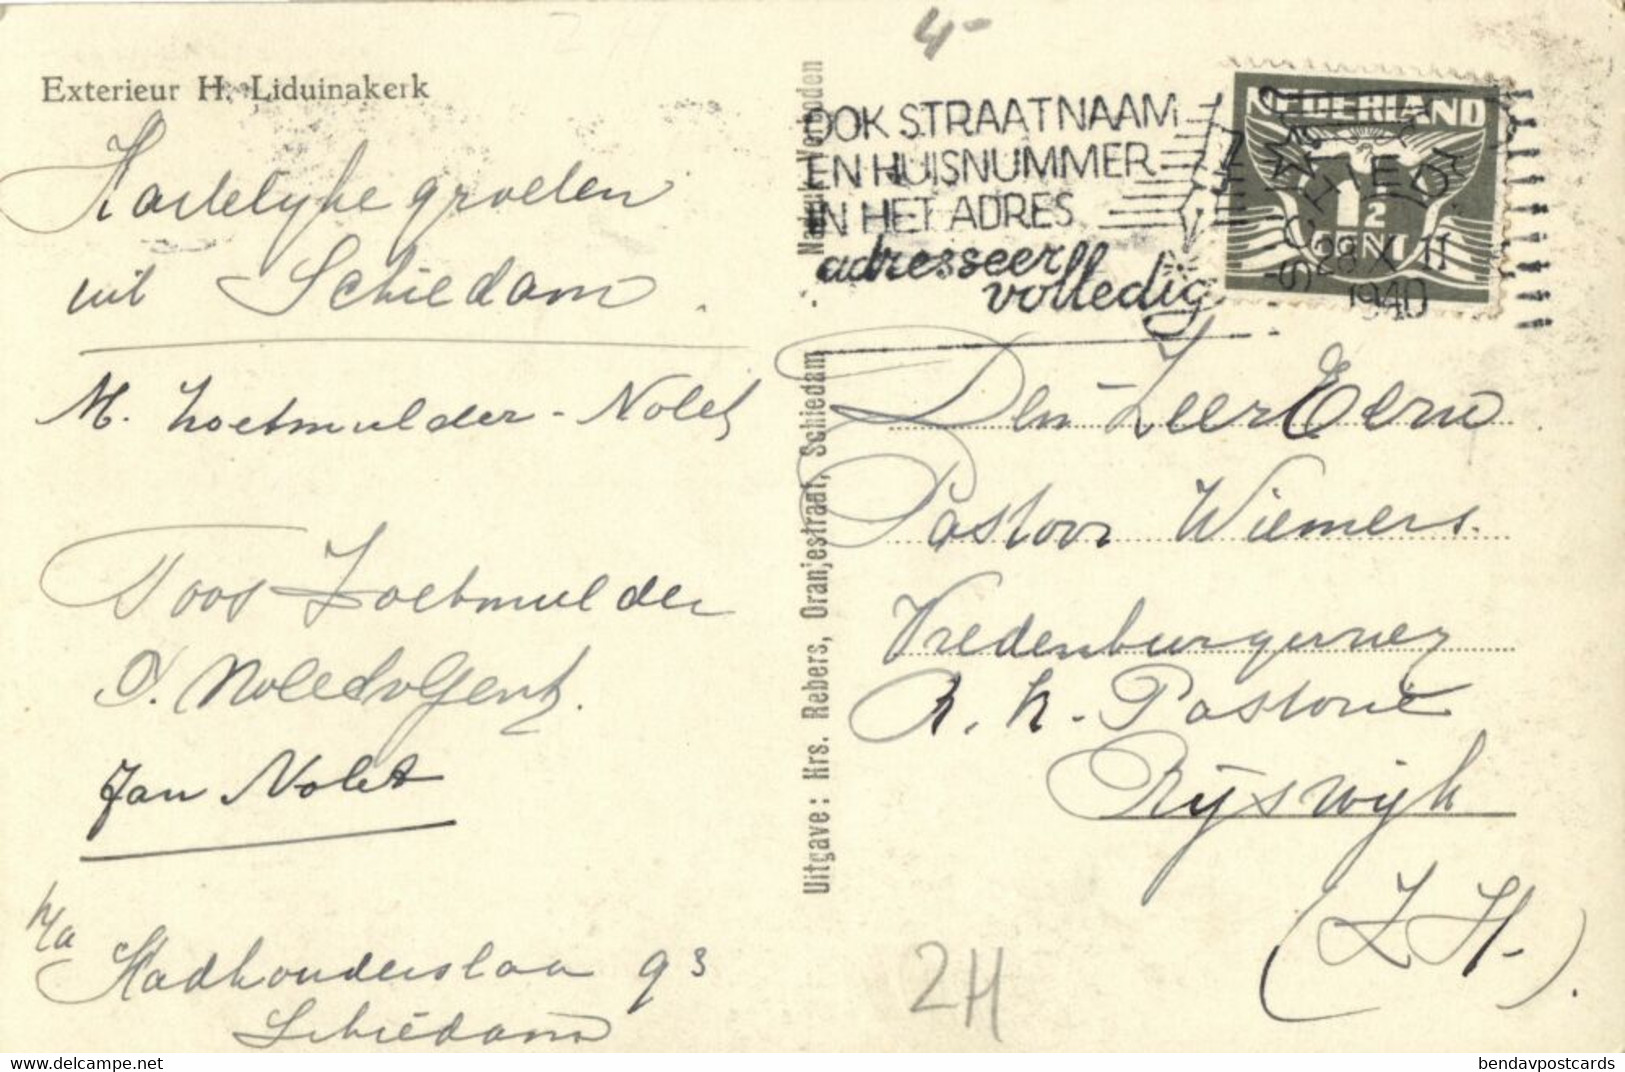 4-
Exterieur H. Liduinakerk
Hartelyke groeten
uit Schiedam.
M. Zoetmulder-Nolet
Toos Zoetmulder
Jan Nolet
h/a Stadhouderslaan 93
Schiedam
Nadruk Verboden
Uitgave: Hrs. Rebers, Oranjestraat, Schiedam
OOK STRAATNAAM
EN HUISNUMMER
IN HET ADRES
adresseer
volledig
NEDERLAND
1 1/2
CENT
SCHIEDAM
28 X 11
1940
Den Zeer Eerw
Pastoor Wiemers.
Vredenburgerweg
R. K. Pastorie
Rijswijk
(Z H.).
2H
bendavpostcards